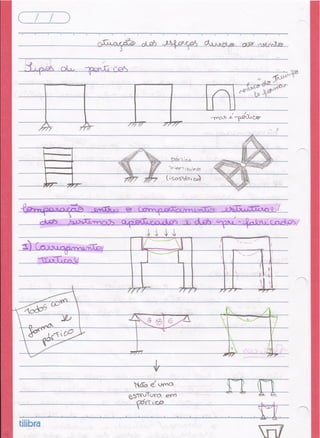 atuação dos esforços devido ao vento
Tipos de pórticos
mas é pórtico
pórtico
(isostático)
Comparação entre o comportamento estrutural
dos sistemas aporticados e dos pré-fabricados
1) Carregamentos
Verticais
Todos com
forma de
pórtico
Não é uma
estrutura em
pórtico
tilibra